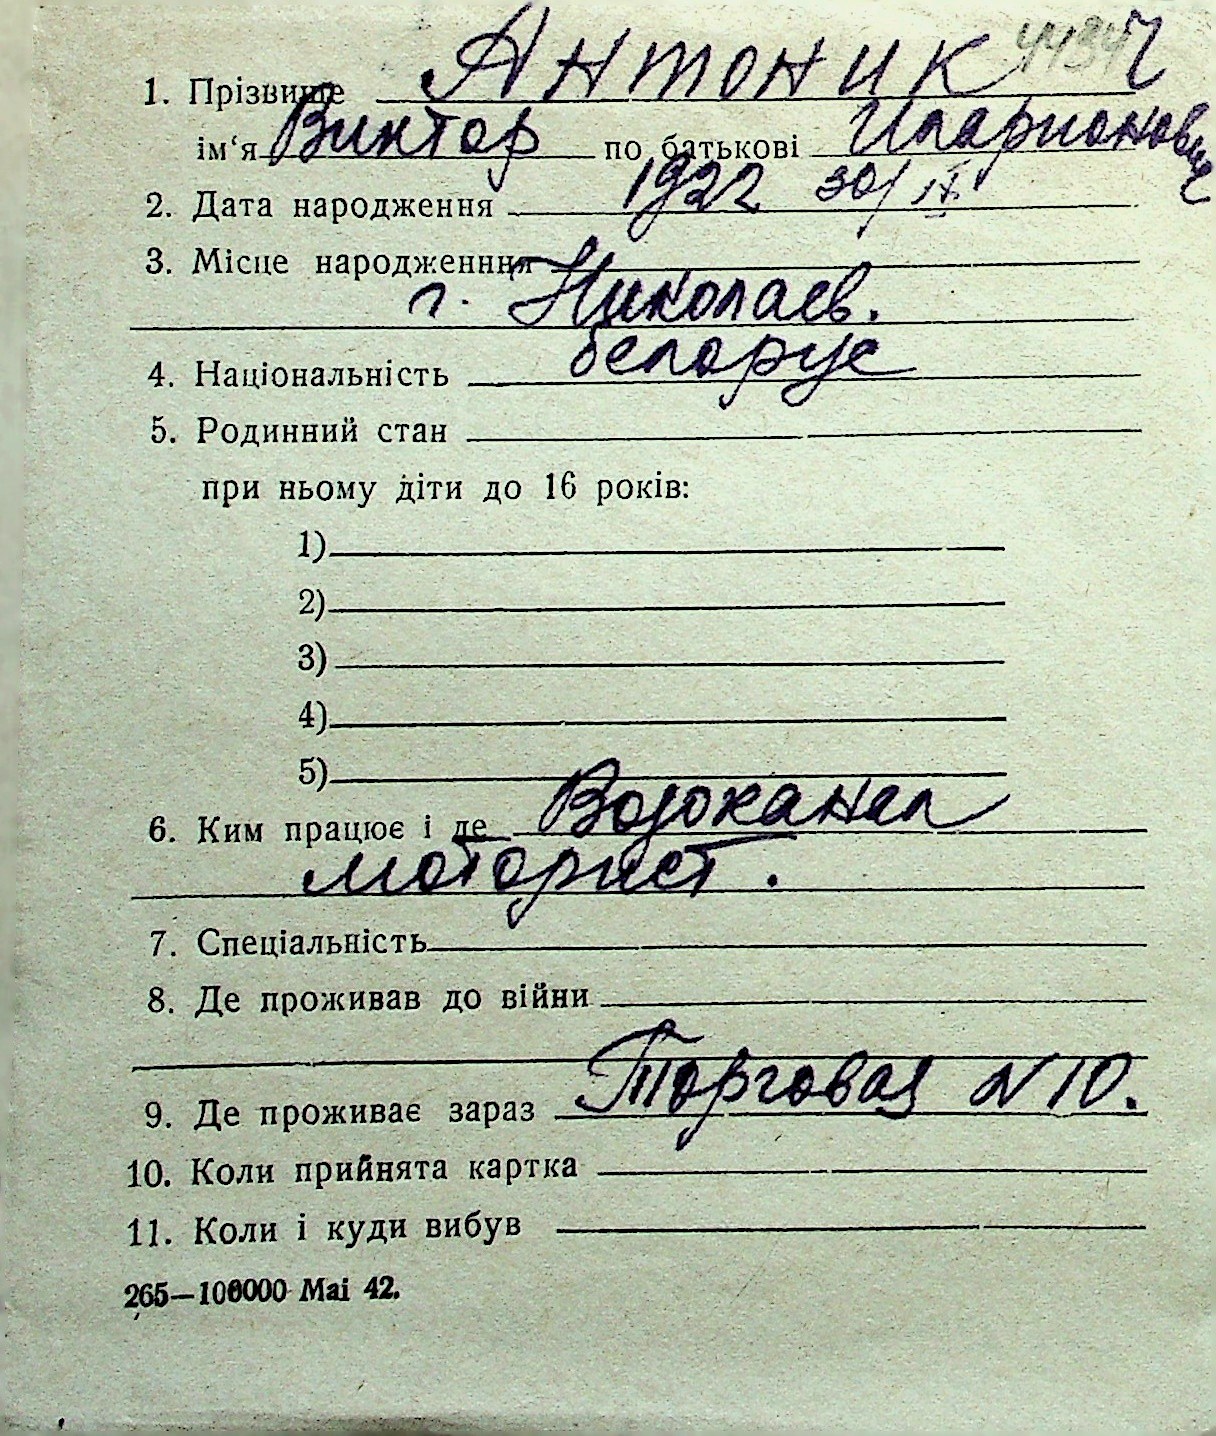 1. Прізвище Антоник
ім‘я Виктор по батькові Иларионович
2. Дата народження 1922 30/IX.
3. Місце народженння
г. Николаев.
4. Національність белорус
5. Родинний стан
при ньому діти до 16 років:
1)
2)
3)
4)
5)
6. Ким працює і де Водоканал
моторист.
7. Спеціальність
8. Де проживав до війни
9. Де проживає зараз Торговая N 10.
10. Коли прийнята картка
11. Коли і куди вибув
265—100000 Mai 42.